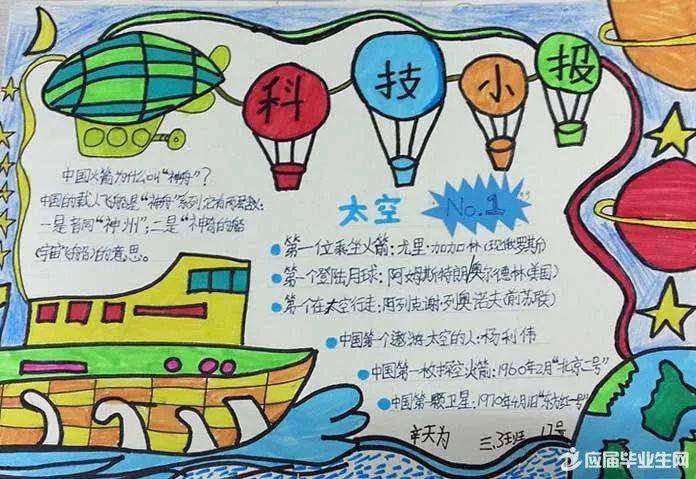 科技小报
中国火箭为什么叫“神舟”?
中国的载人飞船是“神舟”系列,它有两层
一是音同“神州”;二是“神奇的船
(宇宙飞船)的意思。
太空 “No.1”
第一位乘坐火箭:尤里·加加林(现俄罗斯)
第一个登陆月球:阿姆斯特朗/奥尔德林(美国)
第一个在太空行走:阿列克谢·列奥诺夫(前苏联)
中国第一个遨游太空的人:杨利伟
中国第一枚探空火箭:1960年2月“北京二号”
中国第一颗卫星:1970年4月“东方红一号”
辛天为 17号
应届毕业生网